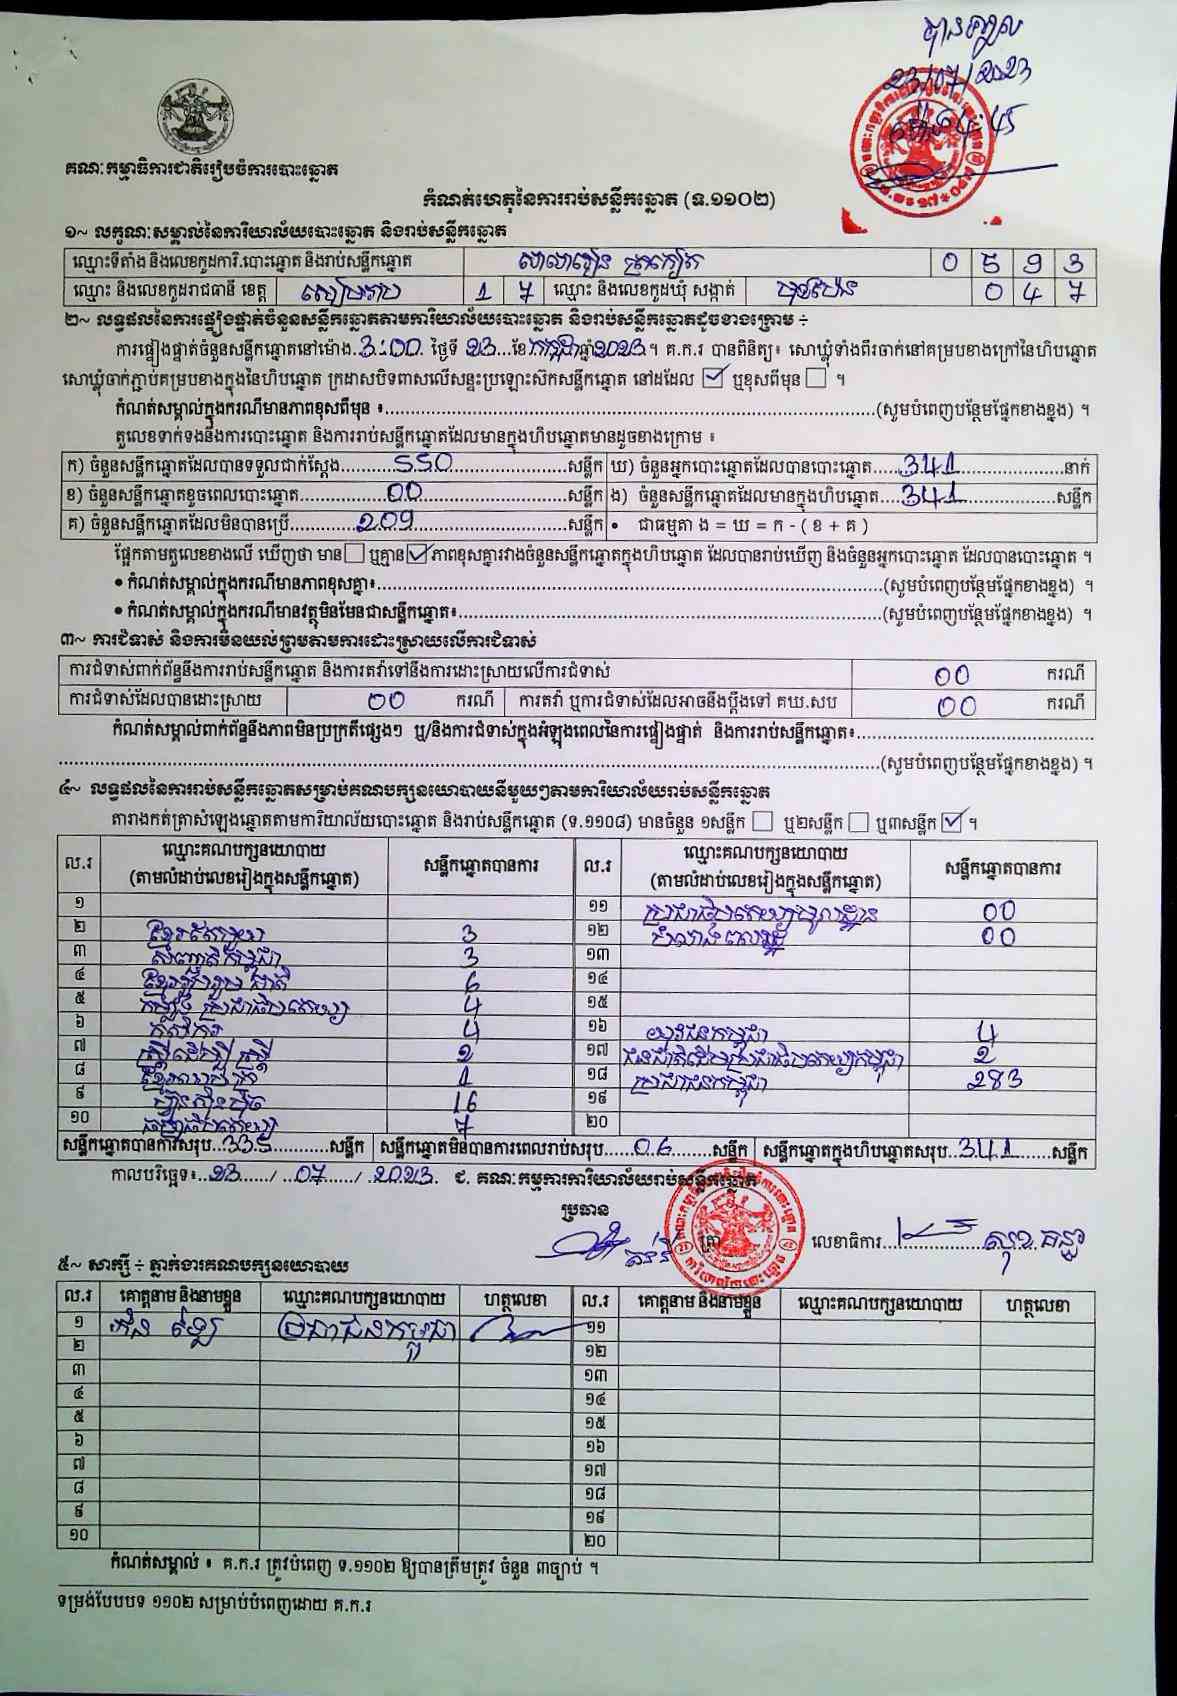 បានចម្លង
23/07/2023
គណៈកម្មាធិការជាតិរៀបចំការបោះឆ្នោត
កំណត់ហេតុនៃការរាប់សន្លឹកឆ្នោត (ទ.១១០២)
១~ លក្ខណៈសម្គាល់នៃការិយាល័យបោះឆ្នោត និងរាប់សន្លឹកឆ្នោត
ឈ្មោះទីតាំង និងលេខកូដការិ.បោះឆ្នោត និងរាប់សន្លឹកឆ្នោត សាលារៀន ត្រកៀត 0 5 9 3
ឈ្មោះ និងលេខកូដរាជធានី ខេត្ត សៀមរាប 1 7 ឈ្មោះ និងលេខកូដឃុំ សង្កាត់ 0 4 7
២~ លទ្ធផលនៃការផ្ទៀងផ្ទាត់ចំនួនសន្លឹកឆ្នោតតាមការិយាល័យបោះឆ្នោត និងរាប់សន្លឹកឆ្នោតដូចខាងក្រោម ÷
ការផ្ទៀងផ្ទាត់ចំនួនសន្លឹកឆ្នោតនៅម៉ោង 3:00 ថ្ងៃទី 23 ខែ កក្កដា ឆ្នាំ 2023 ។ គ.ក.រ បានពិនិត្យ៖ សោឃ្លុំទាំងពីរចាក់នៅគម្របខាងក្រៅនៃហិបឆ្នោត
សោឃ្លុំចាក់ភ្ជាប់គម្របខាងក្នុងនៃហិបឆ្នោត ក្រដាសបិទពាសលើសន្ទះប្រឡោះស៊កសន្លឹកឆ្នោត នៅដដែល ☑ ឬខុសពីមុន ☐ ។
កំណត់សម្គាល់ក្នុងករណីមានភាពខុសពីមុន ៖ (សូមបំពេញបន្ថែមផ្នែកខាងខ្នង) ។
តួលេខទាក់ទងនឹងការបោះឆ្នោត និងការរាប់សន្លឹកឆ្នោតដែលមានក្នុងហិបឆ្នោតមានដូចខាងក្រោម ៖
ក) ចំនួនសន្លឹកឆ្នោតដែលបានទទួលជាក់ស្តែង 550 សន្លឹក ឃ) ចំនួនអ្នកបោះឆ្នោតដែលបានបោះឆ្នោត 341 នាក់
ខ) ចំនួនសន្លឹកឆ្នោតខូចពេលបោះឆ្នោត 00 សន្លឹក ង) ចំនួនសន្លឹកឆ្នោតដែលមានក្នុងហិបឆ្នោត 341 សន្លឹក
គ) ចំនួនសន្លឹកឆ្នោតដែលមិនបានប្រើ 209 សន្លឹក • ជាធម្មតា ង = ឃ = ក - ( ខ + គ )
ផ្អែកតាមតួលេខខាងលើ ឃើញថា មាន ☐ ឬគ្មាន ☑ ភាពខុសគ្នារវាងចំនួនសន្លឹកឆ្នោតក្នុងហិបឆ្នោត ដែលបានរាប់ឃើញ និងចំនួនអ្នកបោះឆ្នោត ដែលបានបោះឆ្នោត ។
• កំណត់សម្គាល់ក្នុងករណីមានភាពខុសគ្នា៖ (សូមបំពេញបន្ថែមផ្នែកខាងខ្នង) ។
• កំណត់សម្គាល់ក្នុងករណីមានវត្ថុមិនមែនជាសន្លឹកឆ្នោត៖ (សូមបំពេញបន្ថែមផ្នែកខាងខ្នង) ។
៣~ ការជំទាស់ និងការមិនយល់ព្រមតាមការដោះស្រាយលើការជំទាស់
ការជំទាស់ពាក់ព័ន្ធនឹងការរាប់សន្លឹកឆ្នោត និងការតវ៉ាទៅនឹងការដោះស្រាយលើការជំទាស់ 00 ករណី
ការជំទាស់ដែលបានដោះស្រាយ 00 ករណី ការតវ៉ា ឬការជំទាស់ដែលអាចនឹងប្តឹងទៅ គឃ.សប 00 ករណី
កំណត់សម្គាល់ពាក់ព័ន្ធនឹងភាពមិនប្រក្រតីផ្សេងៗ ឬ/និងការជំទាស់ក្នុងអំឡុងពេលនៃការផ្ទៀងផ្ទាត់ និងការរាប់សន្លឹកឆ្នោត៖
(សូមបំពេញបន្ថែមផ្នែកខាងខ្នង) ។
៤~ លទ្ធផលនៃការរាប់សន្លឹកឆ្នោតសម្រាប់គណបក្សនយោបាយនីមួយៗតាមការិយាល័យរាប់សន្លឹកឆ្នោត
តារាងកត់ត្រាសំឡេងឆ្នោតតាមការិយាល័យបោះឆ្នោត និងរាប់សន្លឹកឆ្នោត (ទ.១១០៨) មានចំនួន ១សន្លឹក ☐ ឬ២សន្លឹក ☐ ឬ៣សន្លឹក ☑ ។
ល.រ ឈ្មោះគណបក្សនយោបាយ (តាមលំដាប់លេខរៀងក្នុងសន្លឹកឆ្នោត) សន្លឹកឆ្នោតបានការ ល.រ ឈ្មោះគណបក្សនយោបាយ (តាមលំដាប់លេខរៀងក្នុងសន្លឹកឆ្នោត) សន្លឹកឆ្នោតបានការ
១ ១១ ប្រជាធិបតេយ្យមូលដ្ឋាន 00
២ ខ្មែរឥស្សរៈ 3 ១២ 00
៣ សញ្ជាតិកម្ពុជា 3 ១៣
៤ ខ្មែររួបរួមជាតិ 6 ១៤
៥ កម្លាំង ប្រជាធិបតេយ្យ 4 ១៥
៦ កសិករ 4 ១៦ យុវជនកម្ពុជា 4
៧ ស្ត្រីដើម្បីស្ត្រី 2 ១៧ ជនជាតិដើមប្រជាធិបតេយ្យកម្ពុជា 2
៨ 1 ១៨ ប្រជាជនកម្ពុជា 283
៩ ហ៊្វុនស៊ិនប៉ិច 16 ១៩
១០ ធម្មាធិបតេយ្យ 7 ២០
សន្លឹកឆ្នោតបានការសរុប 335 សន្លឹក សន្លឹកឆ្នោតមិនបានការពេលរាប់សរុប 06 សន្លឹក សន្លឹកឆ្នោតក្នុងហិបឆ្នោតសរុប 341 សន្លឹក
កាលបរិច្ឆេទ៖ 23 / 07 / 2023. ជ. គណៈកម្មការការិយាល័យរាប់សន្លឹកឆ្នោត
ប្រធាន
ត្រា លេខាធិការ សុខ គន្ធា
៥~ សាក្សី ÷ ភ្នាក់ងារគណបក្សនយោបាយ
ល.រ គោត្តនាម និងនាមខ្លួន ឈ្មោះគណបក្សនយោបាយ ហត្ថលេខា ល.រ គោត្តនាម និងនាមខ្លួន ឈ្មោះគណបក្សនយោបាយ ហត្ថលេខា
១ ប្រជាជនកម្ពុជា ១១
២ ១២
៣ ១៣
៤ ១៤
៥ ១៥
៦ ១៦
៧ ១៧
៨ ១៨
៩ ១៩
១០ ២០
កំណត់សម្គាល់ ៖ គ.ក.រ ត្រូវបំពេញ ទ.១១០២ ឱ្យបានត្រឹមត្រូវ ចំនួន ៣ច្បាប់ ។
ទម្រង់បែបបទ ១១០២ សម្រាប់បំពេញដោយ គ.ក.រ